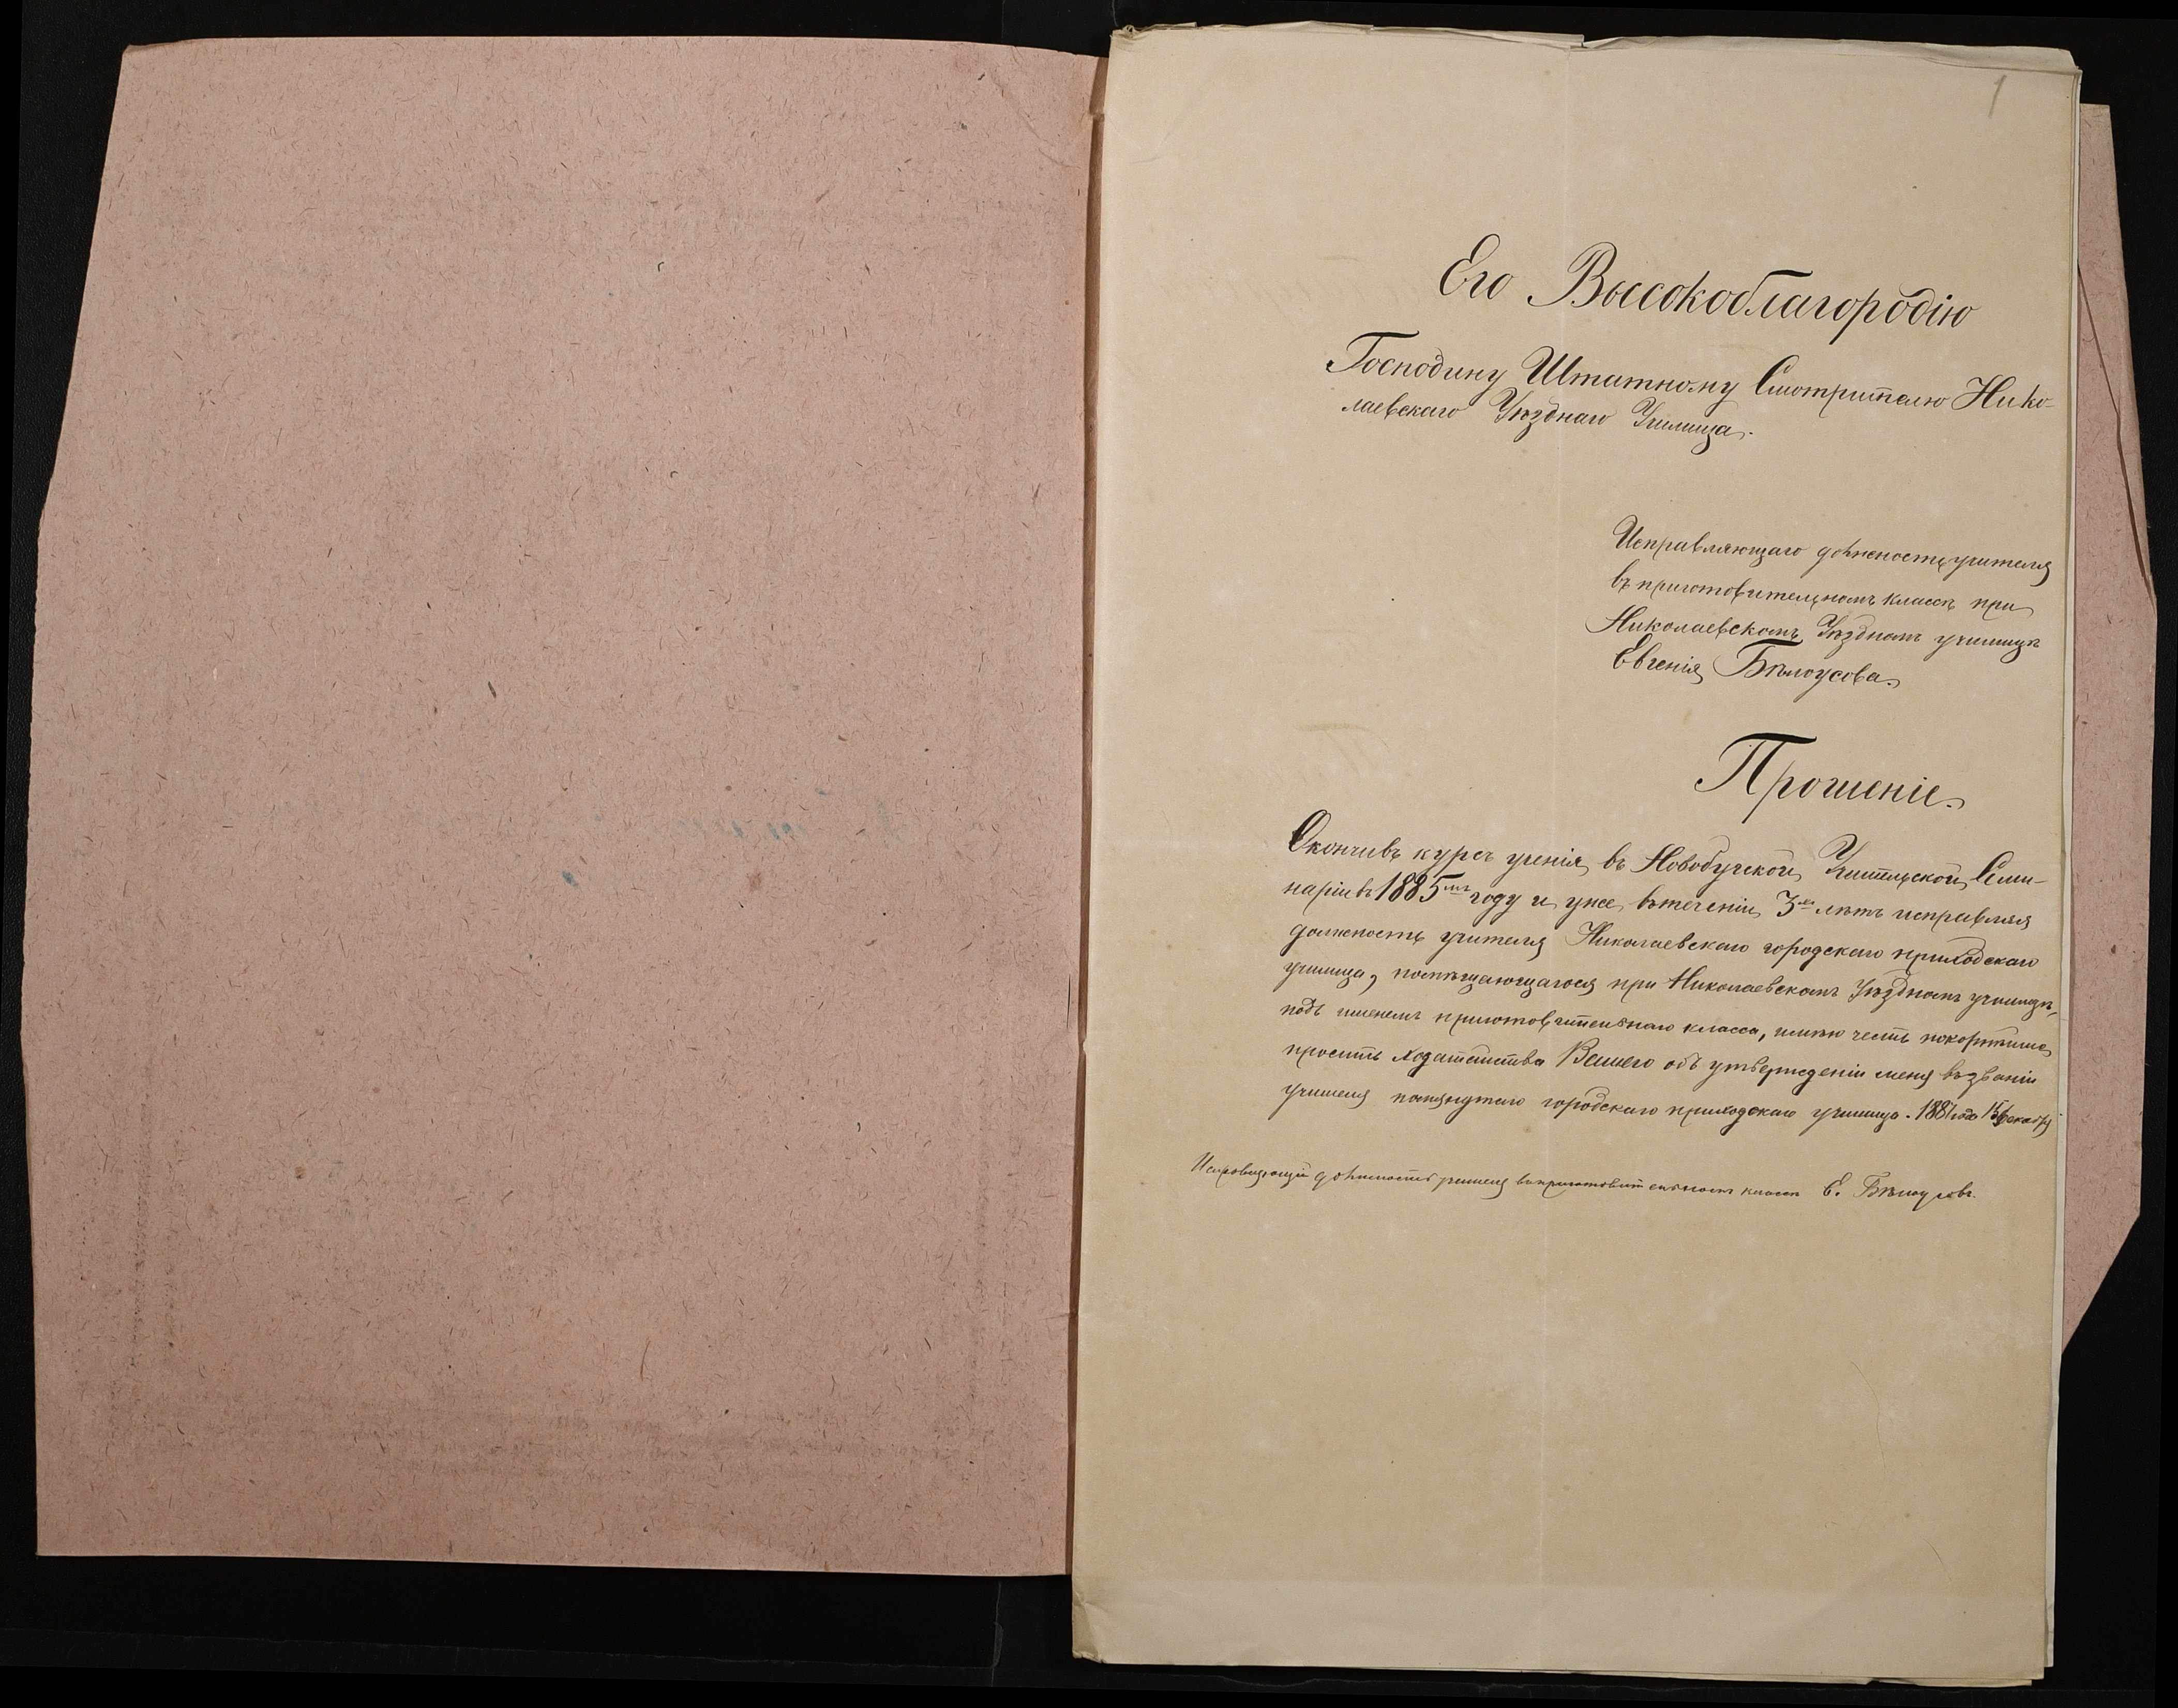 1
Его Высокоблагородію
Господину Штатному Смотрителю Нико-
лаевскаго Уѣзднаго Училища.
Исправляющаго должность учителя
въ приготовительномъ классѣ при
Николаевскомъ Уѣздномъ училищѣ
Евгенія Бѣлоусова.
Прошеніе.
Окончивъ курсъ ученія въ Новобугской Учительской Семи-
наріи въ 1885мъ году и уже въ теченіи 3хъ лѣтъ исправляя
должность учителя Николаевскаго городскаго приходскаго
училища, помѣщающагося при Николаевскомъ Уѣздномъ училищѣ,
подъ именемъ приготовительнаго класса, имѣю честь покорнѣйше
просить ходатайства Вашего объ утвержденіи меня въ званіи
учителя помянутаго городскаго приходскаго училища. 1887 года Декабря
Исправляющій должность учителя въ приготовительномъ классѣ Е. Бѣлоусовъ.